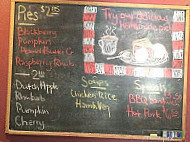 Pies $2.95
Blackberry
Pumpkin
Peanut Butter Cr
Raspberry Rhub
2.10
Dutch Apple
Rhubarb
Pumpkin
Cherry
Try our delicious
Homemade
Soups
Chicken Rice
Ham & Veg
Specials
BBQ
Hot Pork